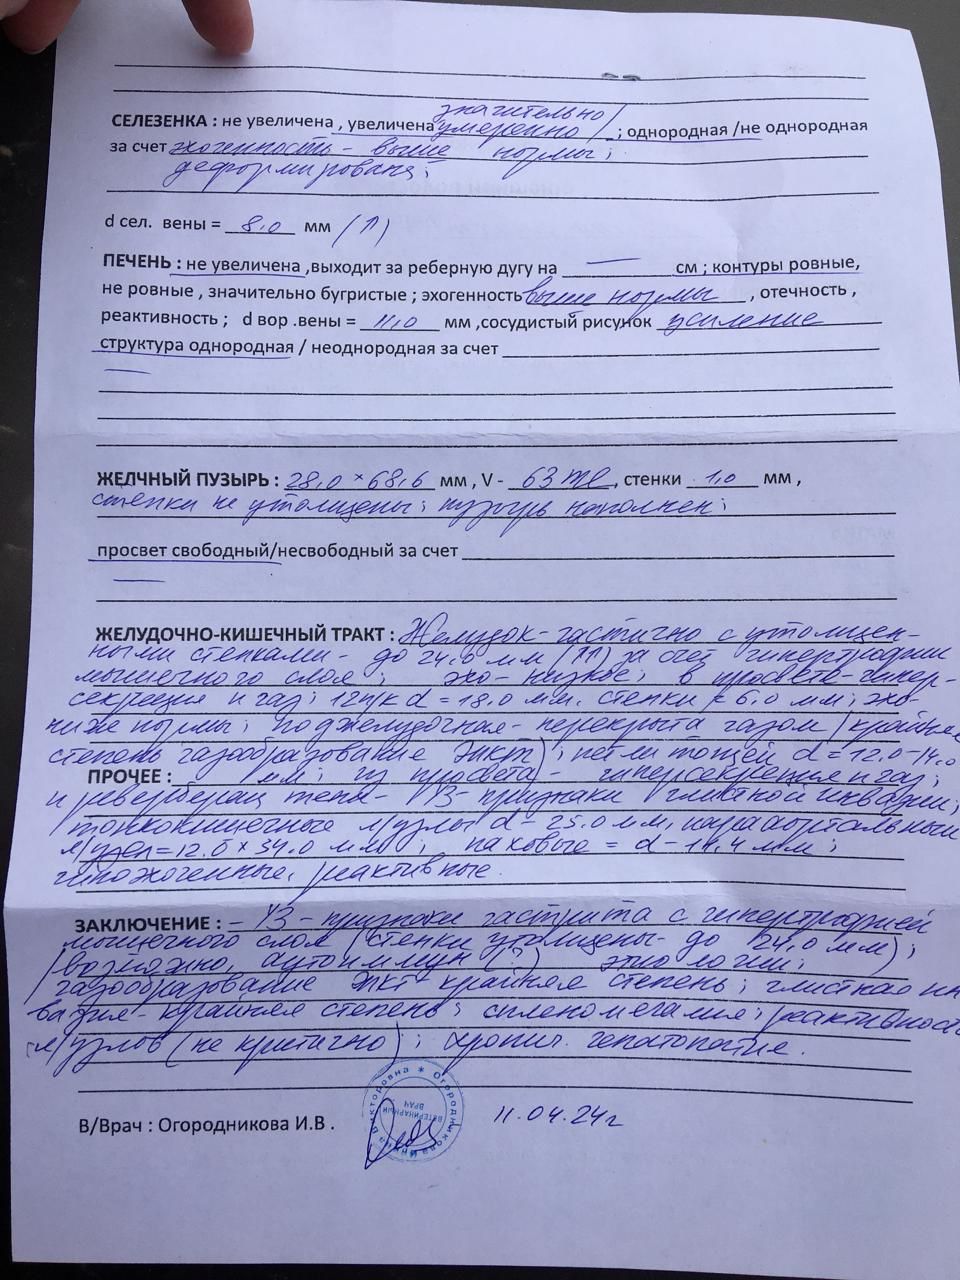 значительно/
СЕЛЕЗЕНКА : не увеличена , увеличена умеренно / ; однородная /не однородная
за счет эхогенность - выше нормы ;
деформирована;
d сел. вены = 8,0 мм (↑)
ПЕЧЕНЬ : не увеличена ,выходит за реберную дугу на — см ; контуры ровные,
не ровные , значительно бугристые ; эхогенность выше нормы , отечность ,
реактивность ; d вор .вены = 11,0 мм ,сосудистый рисунок усиление
структура однородная / неоднородная за счет
—
ЖЕЛЧНЫЙ ПУЗЫРЬ : 28,0 × 68,6 мм , V - 63 мл , стенки 1,0 мм ,
стенки не утолщены; пузырь наполнен;
просвет свободный/несвободный за счет
—
ЖЕЛУДОЧНО-КИШЕЧНЫЙ ТРАКТ : Желудок - частично с утолщен-
ными стенками - до 24,0 мм (↑↑) за счет гипертрофии
мышечного слоя; эхо - низкое; в просвете - гипер-
секреция и газ; 12п/к d = 18,0 мм, стенки < 6,0 мм; эхо-
ниже нормы; поджелудочная - перекрыта газом (крайняя
степень газообразование ЖКТ); петли тощей d = 12,0-14,0
ПРОЧЕЕ : мм; из просвета - гиперсекреция и газ;
и ревербер тени - УЗ - признаки глистной инвазии;
тонкокишечные л/узлы d = 25,0 мм, парааортальный
л/узел = 12,0 × 34,0 мм ; паховые = d - 14,4 мм ;
гипоэхогенные, реактивные.
ЗАКЛЮЧЕНИЕ : - УЗ - признаки гастрита с гипертрофией
мышечного слоя (стенки утолщены - до 24,0 мм);
(возможно, аутоиммун (?) этиологии;
газообразование ЖКТ крайняя степень; глистная ин-
вазия - крайняя степень; спленомегалия; реактивность
л/узлов (не критично) ; хронич. гепатопатия.
В/Врач : Огородникова И.В .
11.04.24г
Огородникова Инна Викторовна * ВЕТЕРИНАРНЫЙ ВРАЧ